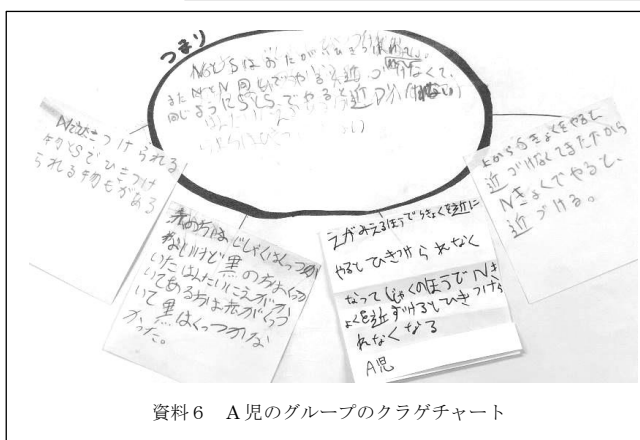 つまり
NとSはおたがいひきつけ
またNとN同しでやると近づけなくて、
同じようにSとSでやると近づけない
Nでひきつけられる
物とSでひきつけ
られる物もがある
赤の方はじしゃくはくっつか
ないけど黒の方はくっつ
いたはんたいにえがか
いてある方は赤がくっつ
いて黒はくっつかな
かった。
えがみえるほうでSきょくを近に
やるとひきつけられなく
なってじしゃくのほうでNき
ょくを近ずけるとひきつけら
れなくなる
A児
上からSきょくをやると、
近づけなくてきたたから
Nきょくでやると、
近づける。
資料6 A児のグループのクラゲチャート